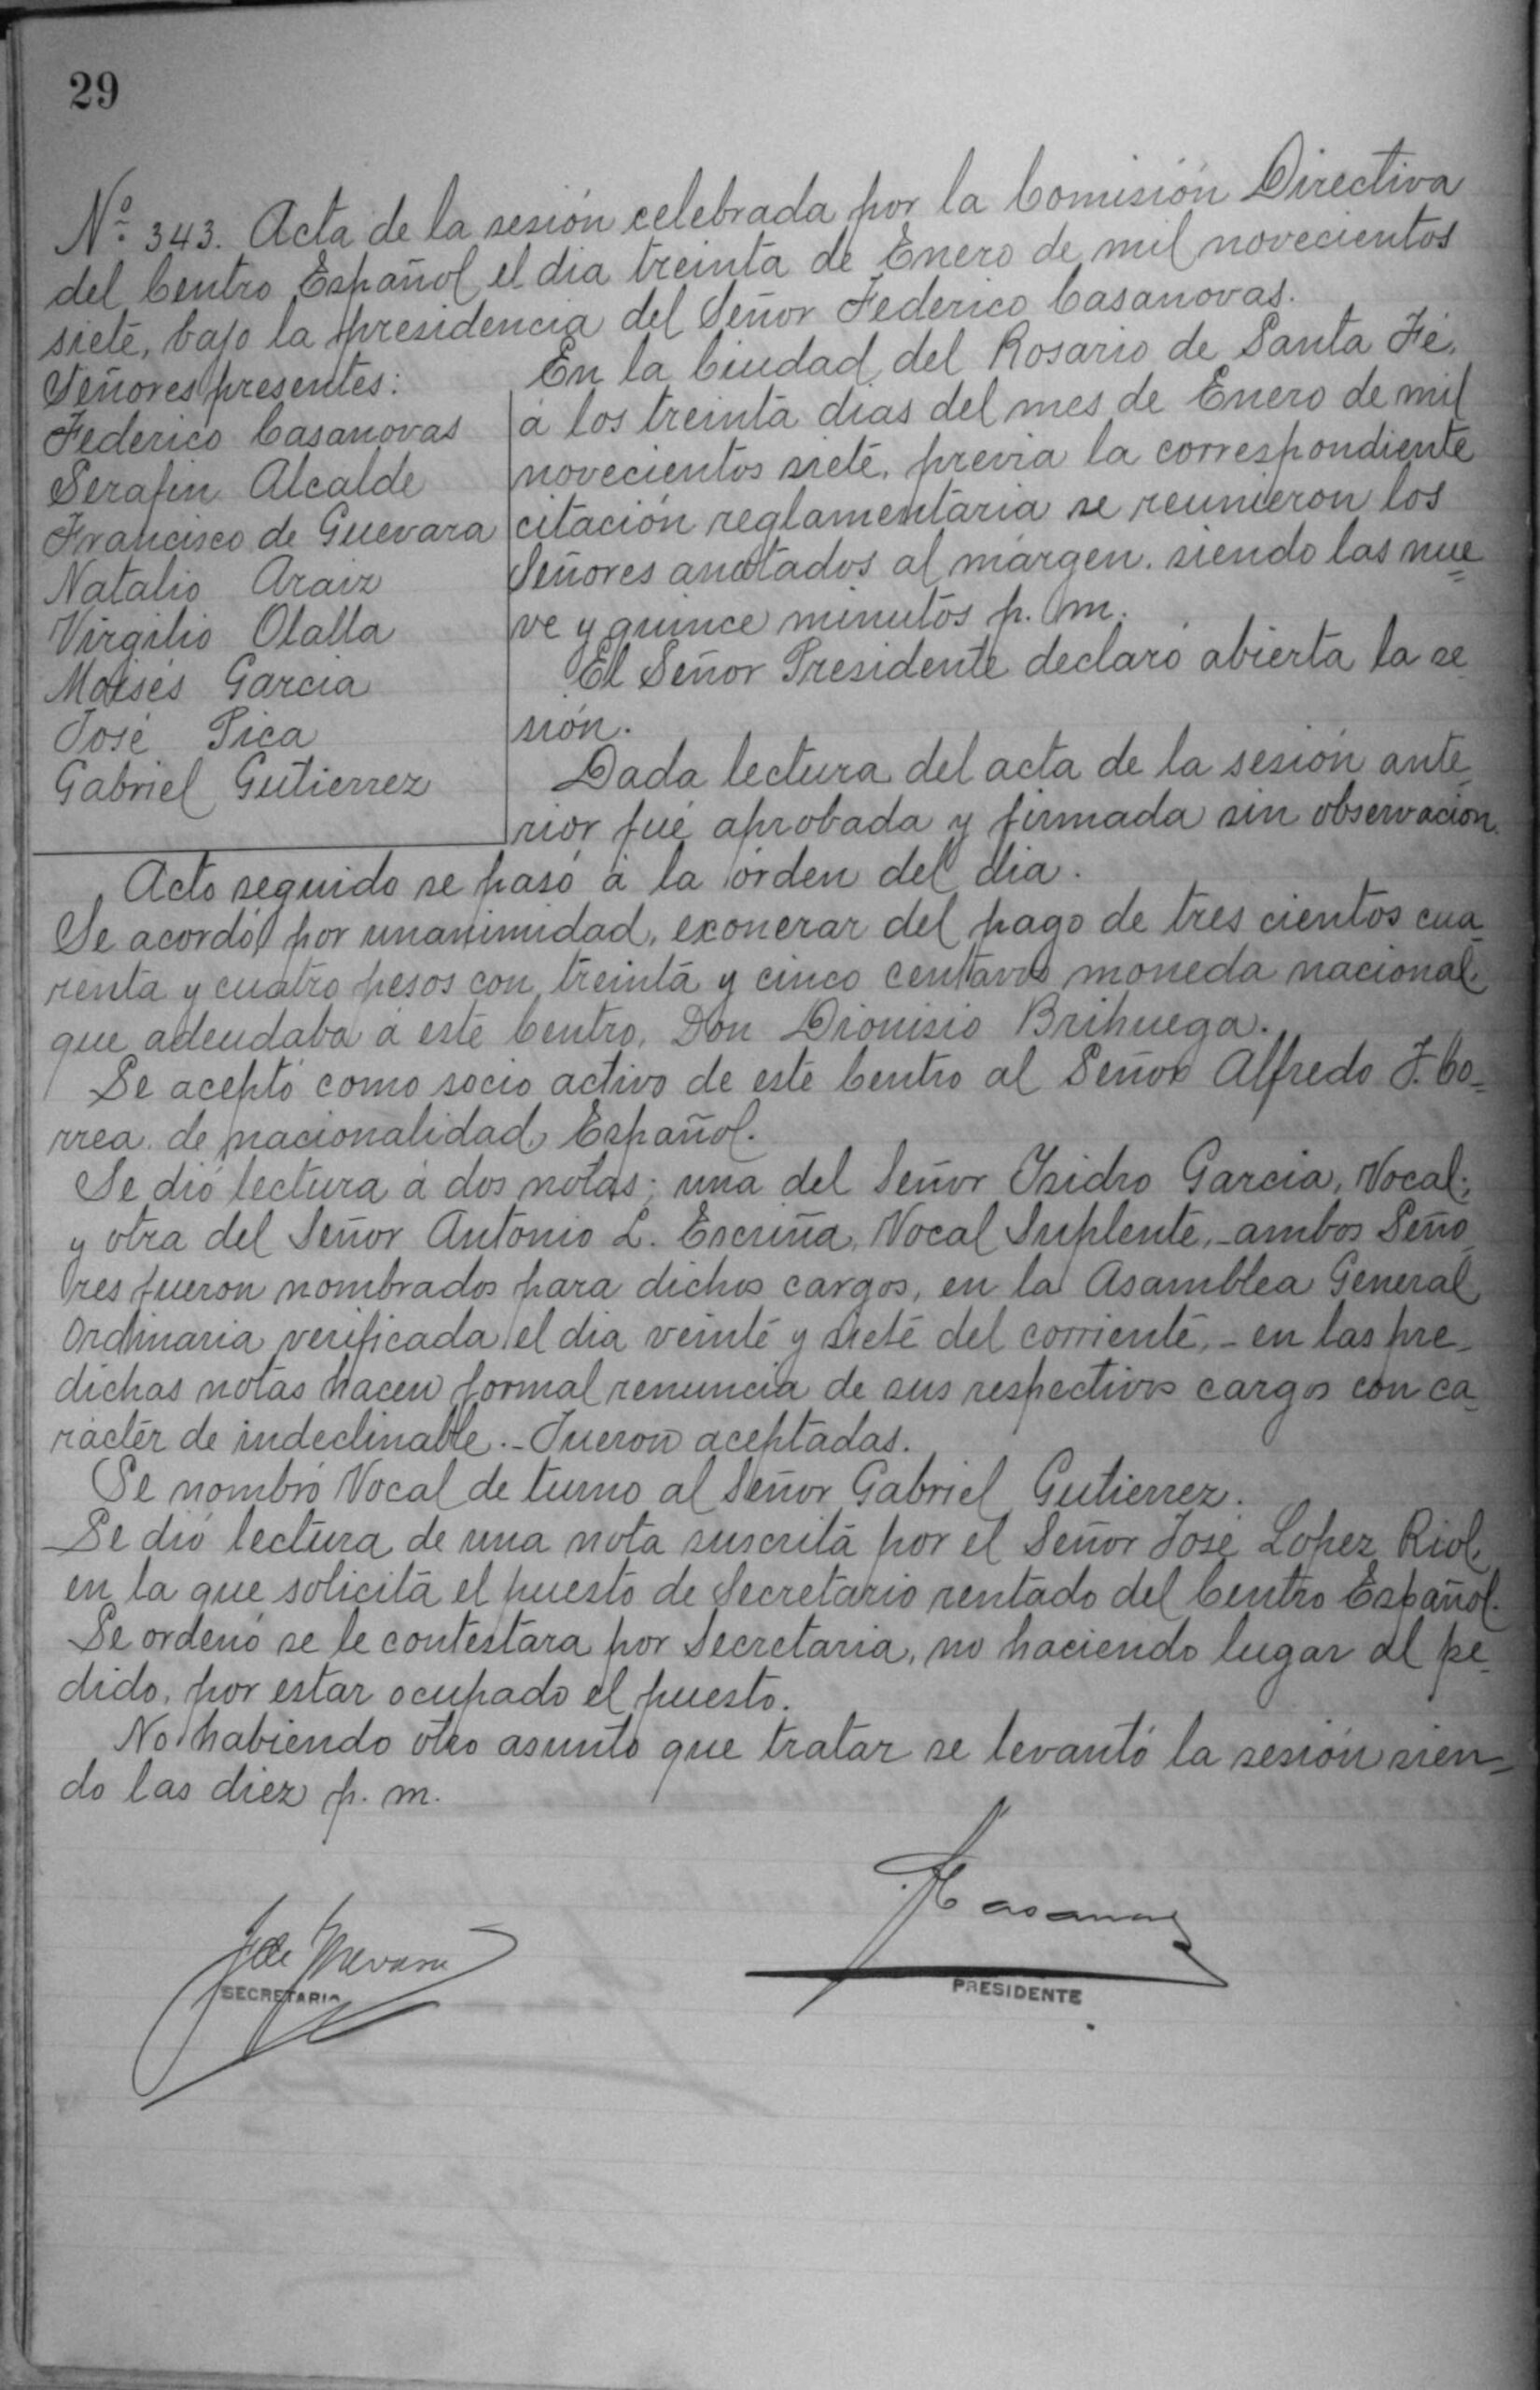 29
Nº 343. Acta de la sesión celebrada por la Comisión Directiva
del Centro Español el dia treinta de Enero de mil novecientos
siete, bajo la presidencia del Señor Federico Casanovas.
Señores presentes:
Federico Casanovas
Serafin Alcalde
Francisco de Guevara
Natalio Araiz
Virgilio Olalla
Moisés Garcia
José Pica
Gabriel Gutierrez
En la Ciudad del Rosario de Santa Fé,
á los treinta dias del mes de Enero de mil
novecientos siete, previa la correspondiente
citación reglamentaria se reunieron los
Señores anotados al márgen. siendo las nue=
ve y quince minutos p. m.
El Señor Presidente declaró abierta la se_
sión.
Dada lectura del acta de la sesión ante_
rior fué aprobada y firmada sin observación.
Acto seguido se pasó á la órden del dia.
Se acordó, por unanimidad, exonerar del pago de tres cientos cua_
renta y cuatro pesos con treinta y cinco centavos moneda nacional
que adeudaba á este Centro, Don Dionisio Brihuega.
Se aceptó como socio activo de este Centro al Señor Alfredo J. Co_
rrea. de nacionalidad Español.
Se dió lectura á dos notas; una del Señor Isidro Garcia, Vocal;
y otra del Señor Antonio L. Escriña, Vocal Suplente,_ambos Seño_
res fueron nombrados para dichos cargos, en la Asamblea General
Ordinaria verificada el dia veinte y siete del corriente,_ en las pre_
dichas notas hacen formal renuncia de sus respectivos cargos con ca_
rácter de indeclinable._Fueron aceptadas.
Se nombró Vocal de turno al Señor Gabriel Gutierrez.
Se dió lectura de una nota suscrita por el Señor José Lopez Riol,
en la que solicita el puesto de Secretario rentado del Centro Español.
Se ordenó se le contestara por Secretaria, no haciendo lugar al pe_
dido, por estar ocupado el puesto.
No habiendo otro asunto que tratar se levantó la sesión sien_
do las diez p. m.
F de Guevara
SECRETARIO
F Casanovas
PRESIDENTE